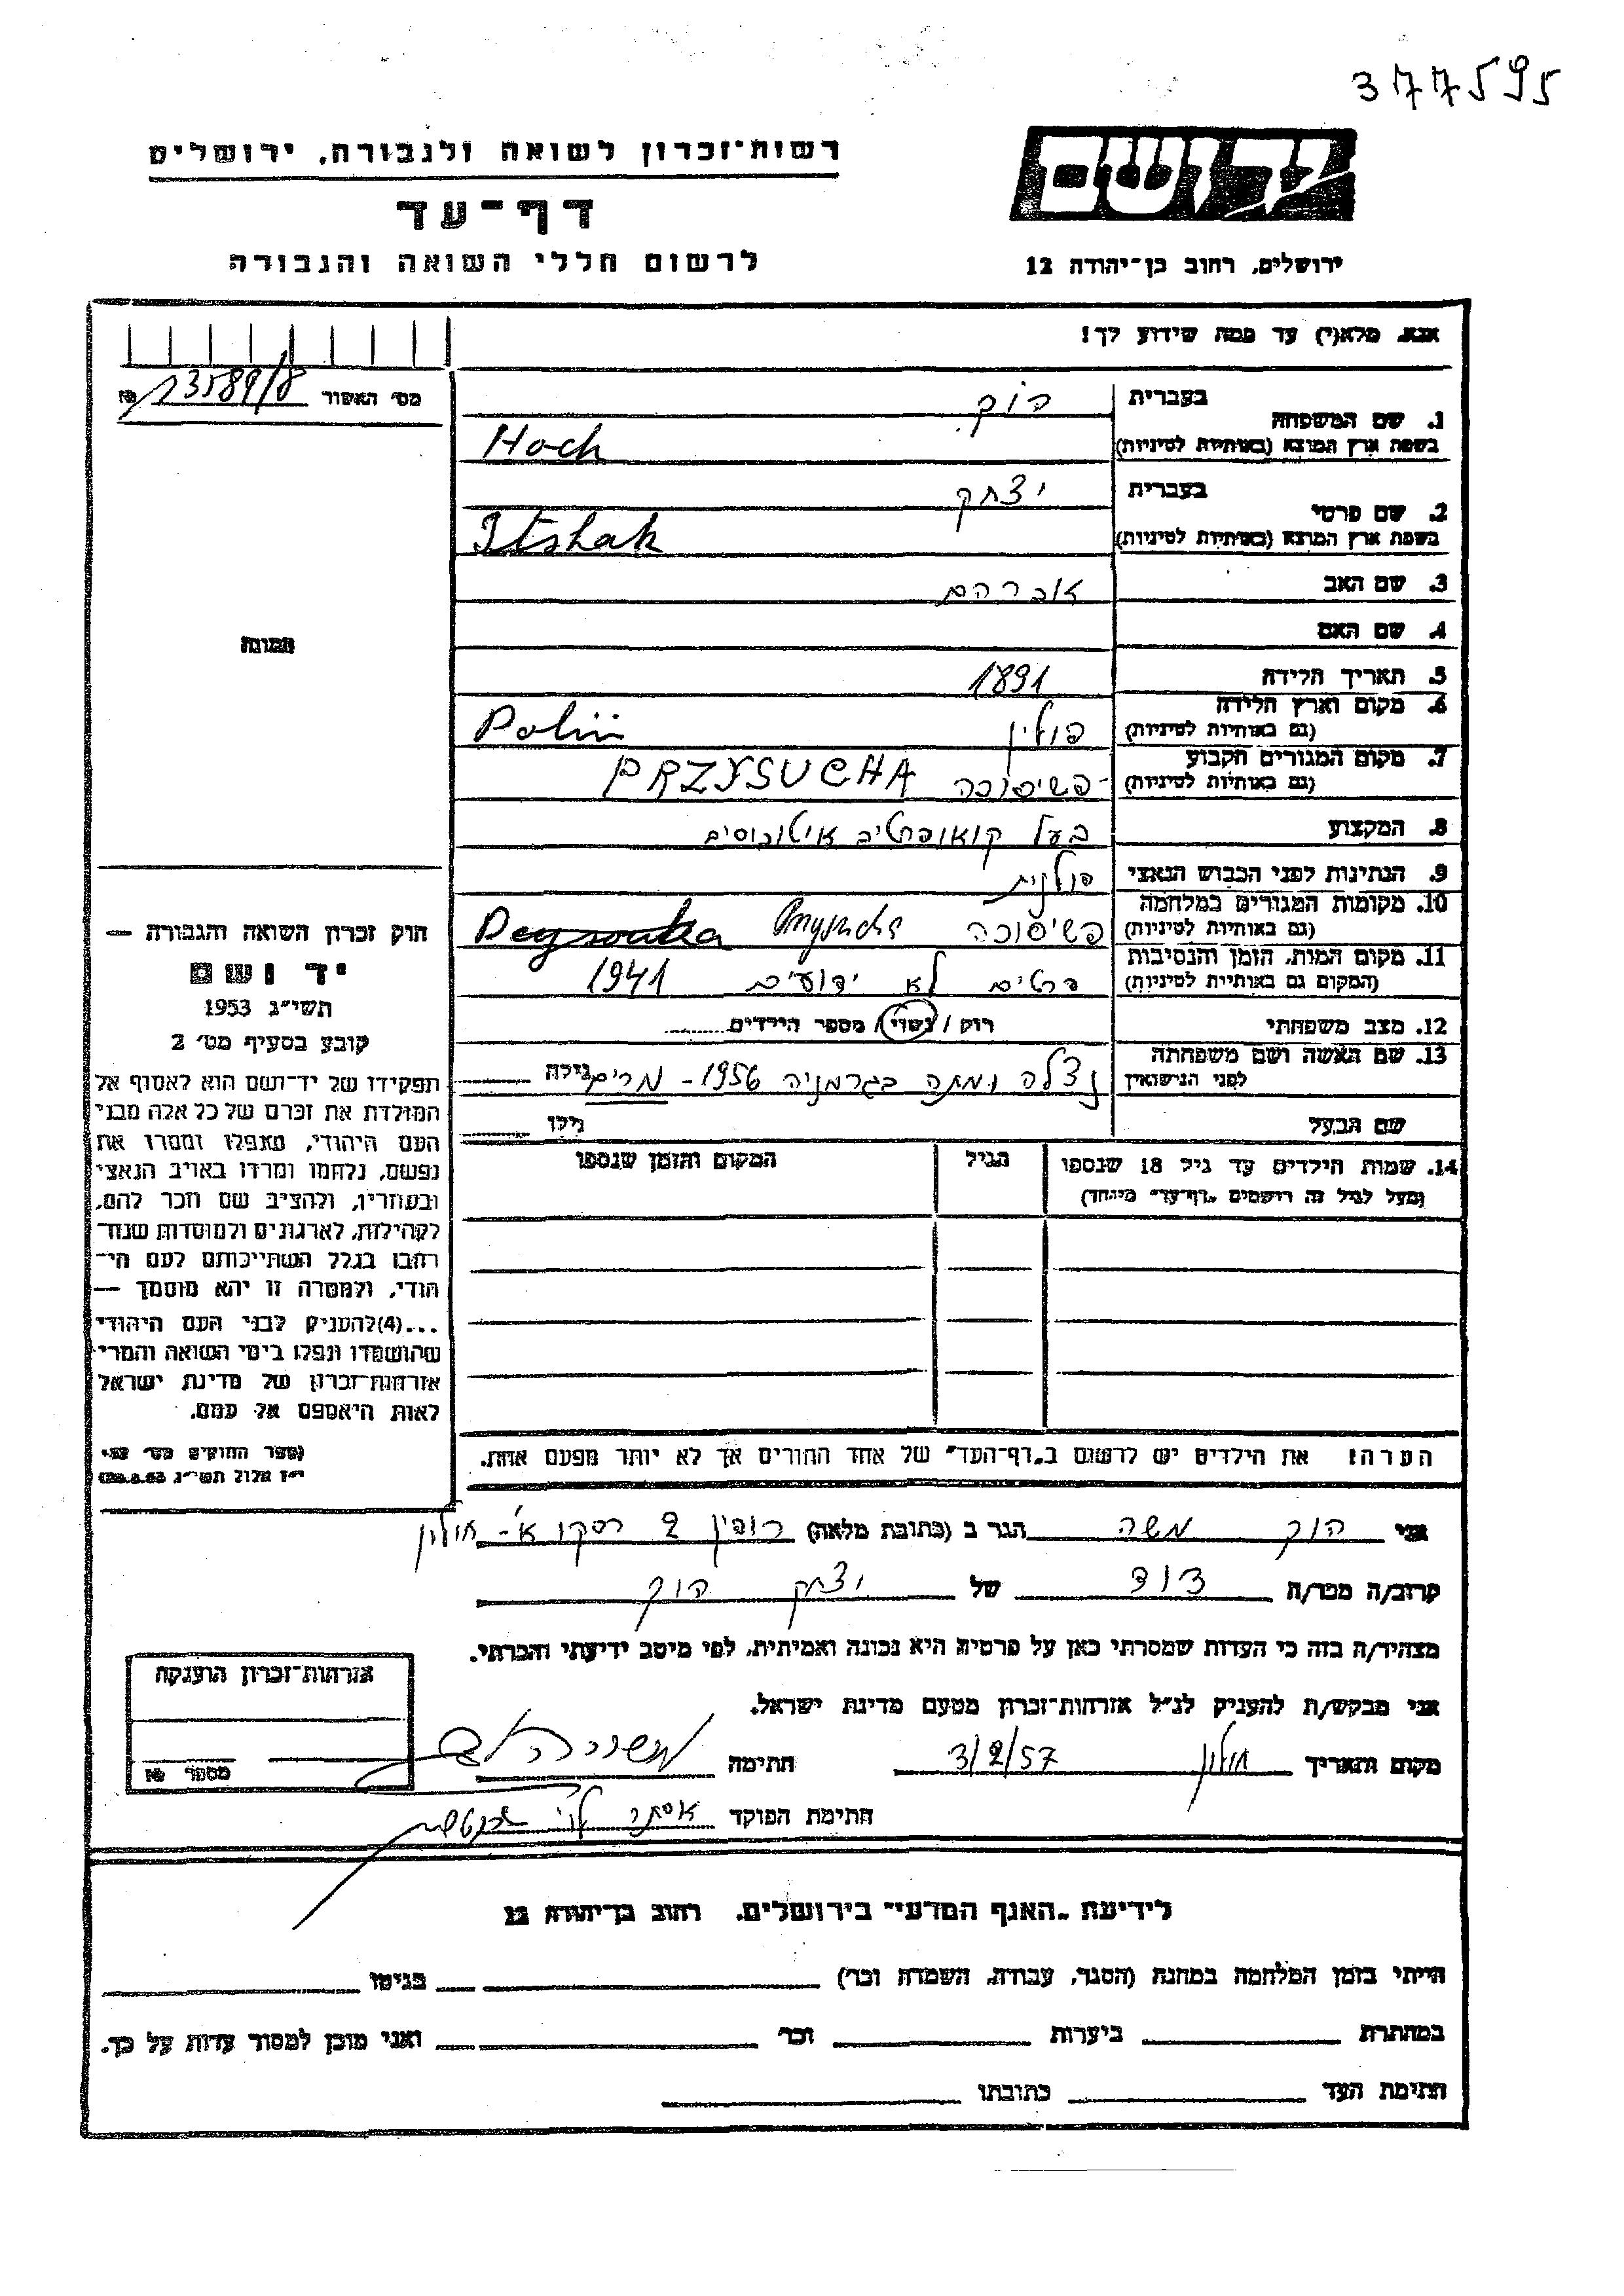 377595
רשות־זכרון לשואה ולגבורה, ירושלים
דף־עד
לרשום חללי השואה והגבורה
יד ושם
ירושלים, רחוב בן־יהודה 12
אנא, מלא(י) עד כמה שידוע לך!
מס׳ האשור № 13589/8
1. שם המשפחה
בעברית הוך
בשפת ארץ המוצא (באותיות לטיניות) Hoch
2. שם פרטי
בעברית יצחק
בשפת ארץ המוצא (באותיות לטיניות) Itshak
3. שם האב אברהם
4. שם האם
5. תאריך הלידה 1891
6. מקום וארץ הלידה
(גם באותיות לטיניות) פולין Polin
7. מקום המגורים הקבוע
(גם באותיות לטיניות) פשיסוכה PRZYSUCHA
8. המקצוע בעל קואופרטיב אוטובוסים
9. הנתינות לפני הכבוש הנאצי פולנית
10. מקומות המגורים במלחמה
(גם באותיות לטיניות) פשיסוכה
11. מקום המות, הזמן והנסיבות
(המקום גם באותיות לטיניות) פרטים לא ידועים 1941
12. מצב משפחתי רוק / נשוי / מספר הילדים
13. שם האשה ושם משפחתה
לפני הנישואין נצלה ומתה בגרמניה 1956 - מרים גילה
שם הבעל גילו
14. שמות הילדים עד גיל 18 שנספו הגיל המקום והזמן שנספו
(מעל לגיל זה רושמים „דף־עד״ מיוחד)
הערה! את הילדים יש לרשום ב„דף־העד״ של אחד ההורים אך לא יותר מפעם אחת.
תמונה
חוק זכרון השואה והגבורה —
יד ושם
תשי״ג 1953
קובע בסעיף מס׳ 2
תפקידו של יד־ושם הוא לאסוף אל
המולדת את זכרם של כל אלה מבני
העם היהודי, שנפלו ומסרו את
נפשם, נלחמו ומרדו באויב הנאצי
ובעוזריו, ולהציב שם וזכר להם,
לקהילות, לארגונים ולמוסדות שנח־
רבו בגלל השתייכותם לעם הי־
הודי, ולמטרה זו יהא מוסמך —
...(4) להעניק לבני העם היהודי
שהושמדו ונפלו בימי השואה והמרי
אזרחות־זכרון של מדינת ישראל
לאות היאספם אל עמם.
(ספר החוקים מס׳ 132
י״ז אלול תשי״ג 28.8.53)
אני הוך משה הגר ב (כתובת מלאה) רופין 2 רסקו א׳ - חולון
קרוב/ה מכר/ה דוד של יצחק הוך
מצהיר/ה בזה כי העדות שמסרתי כאן על פרטיה היא נכונה ואמיתית, לפי מיטב ידיעתי והכרתי.
אני מבקש/ת להעניק לנ״ל אזרחות־זכרון מטעם מדינת ישראל.
מקום ותאריך חולון 3/2/57 חתימה
חתימת הפוקד אסתר
אזרחות־זכרון הוענקה
מספר №
לידיעת „האגף המדעי״ בירושלים, רחוב בן־יהודה 12
הייתי בזמן המלחמה במחנה (הסגר, עבודה, השמדה וכר׳) בגיטו
במחתרת ביערות וכר׳ ואני מוכן למסור עדות על כך.
חתימת העד כתובתו